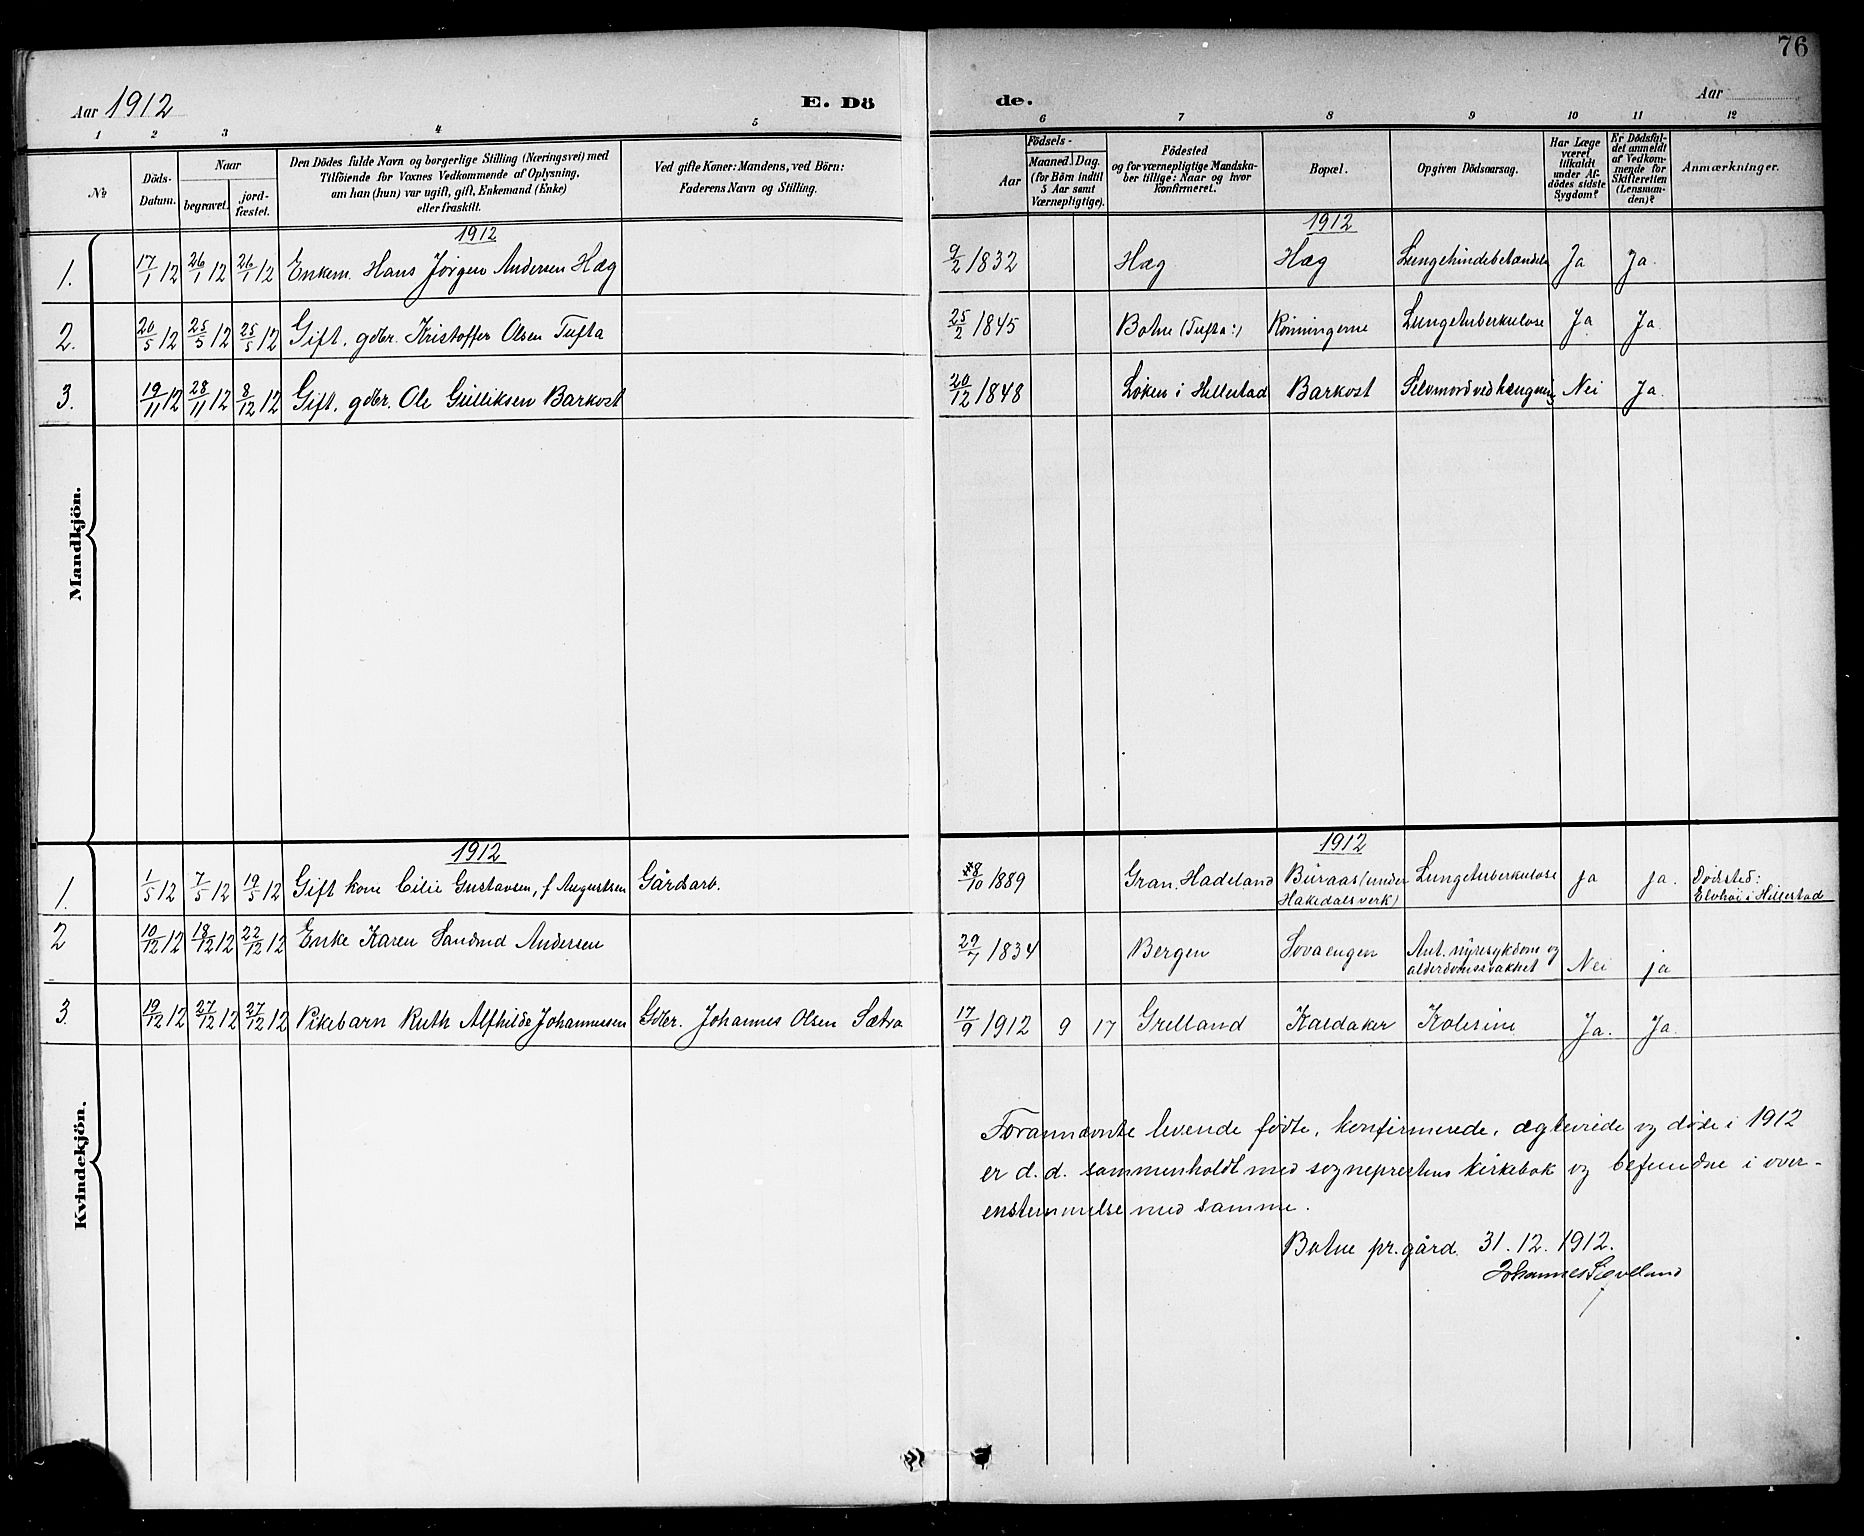 76
Aar 1912
E. Dö
de.
Aar
1 2 3 4 5 6 7 8 9 10 11 12
No
Döds-
Datum.
Naar
begravet.
jord-
fæstet.
Den Dödes fulde Navn og borgerlige Stilling (Næringsvei) med
Tilföiende for Voxnes Vedkommende af Oplysning,
om han (hun) var ugift, gift, Enkemand (Enke)
eller fraskilt.
Ved gifte Koner: Mandens, ved Börn:
Faderens Navn og Stilling.
Födsels-
Aar
Maaned. Dag.
(for Börn indtil
5 Aar samt
Værnepligtige).
Födested
og for værnepligtige Mandska-
ber tillige: Naar og hvor
konfirmeret.
Bopæl.
Opgiven Dödsaarsag.
Har Læge
været
tilkaldt
under Af-
dödes sidste
Sygdom?
Er Dödsfal-
det anmeldt
af Vedkom-
mende for
Skifteretten
(Lensman-
den)?
Anmærkninger.
Mandkjön.
1912 1912
1. 17/1 12 26/1 12 26/1 12 Enkem. Hans Jørgen Andersen Hæg 9/2 1832 Hæg Hæg Lungehindebetændelse Ja Ja.
2. 20/5 12 25/5 12 25/5 12 Gift. gdbr. Kristoffer Olsen Tufta 25/2 1845 Botne (Tufta:) Rønningerne Lungetuberkulose Ja Ja.
3. 19/11 12 28/11 12 8/12 12 Gift. gdbr. Ole Gulliksen Barkost 20/12 1848 Løken i Hillestad Barkost Selvmord ved hængning Nei Ja.
Kvindekjön.
1912 1912
1. 1/5 12 7/5 12 19/5 12 Gift kone Cilie Gustavsen, f. Augustsen Gårdsarb. 8/10 1889 Gran, Hadeland Buraas (under Hakedals verk) Lungetuberkulose ja ja. Dødsted: Elvhøi i Hillestad
2 10/12 12 18/12 12 22/12 12 Enke Karen Sandmd Andersen 29/7 1834 Bergen Sovaengen Ant. nyresykdom og alderdomssvakhet Nei ja
3. 19/12 12 27/12 12 27/12 12 Pikebarn Ruth Alfhilde Johannessen Gdbr. Johannes Olsen Sætra 17/9 1912 9 17 Grelland Kaldaker Kolerine Ja. Ja.
Forannævnte levende fødte, konfirmerede, ægteviede og døde i 1912
er d. d. sammenholdt med sogneprestens kirkebok og befundne i over-
enstemmelse med samme.
Botne pr.gård. 31.12.1912.
Johannes